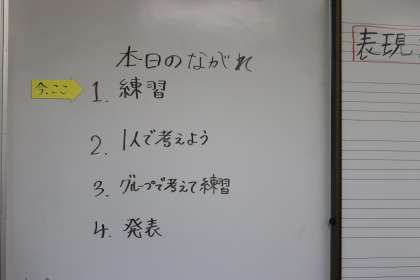 本日のながれ
今、ここ
1. 練習
2. 1人で考えよう
3. グループで考えて練習
4. 発表
表現